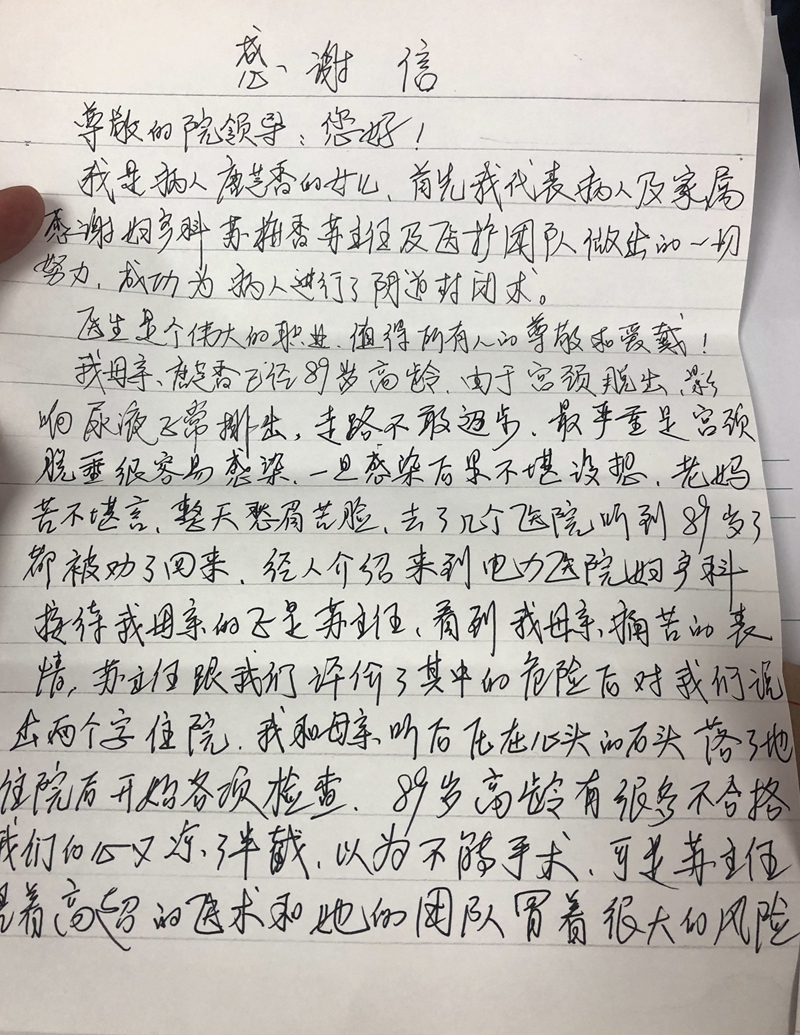 感谢信
尊敬的院领导：您好！
我是病人唐芝香的女儿，首先我代表病人及家属
感谢妇产科苏梅香苏主任及医护团队做出的一切
努力，成功为病人进行了阴道封闭术。
医生是个伟大的职业，值得所有人的尊敬和爱戴！
我母亲，唐芝香已经89岁高龄，由于宫颈脱出，影
响尿液正常排出，走路不敢迈步，最严重是宫颈
脱垂很容易感染，一旦感染后果不堪设想，老妈
苦不堪言，整天愁眉苦脸，去了几个医院听到89岁了
都被劝了回来，经人介绍来到电力医院妇产科
接待我母亲的正是苏主任，看到我母亲，痛苦的表
情，苏主任跟我们评价了其中的危险后对我们说
出两个字住院，我和母亲，听后压在心头的石头落了地
住院后开始各项检查，89岁高龄有很多不合格
我们的心又凉了半截，以为不能手术，可是苏主任
着高超的医术和她的团队冒着很大的风险